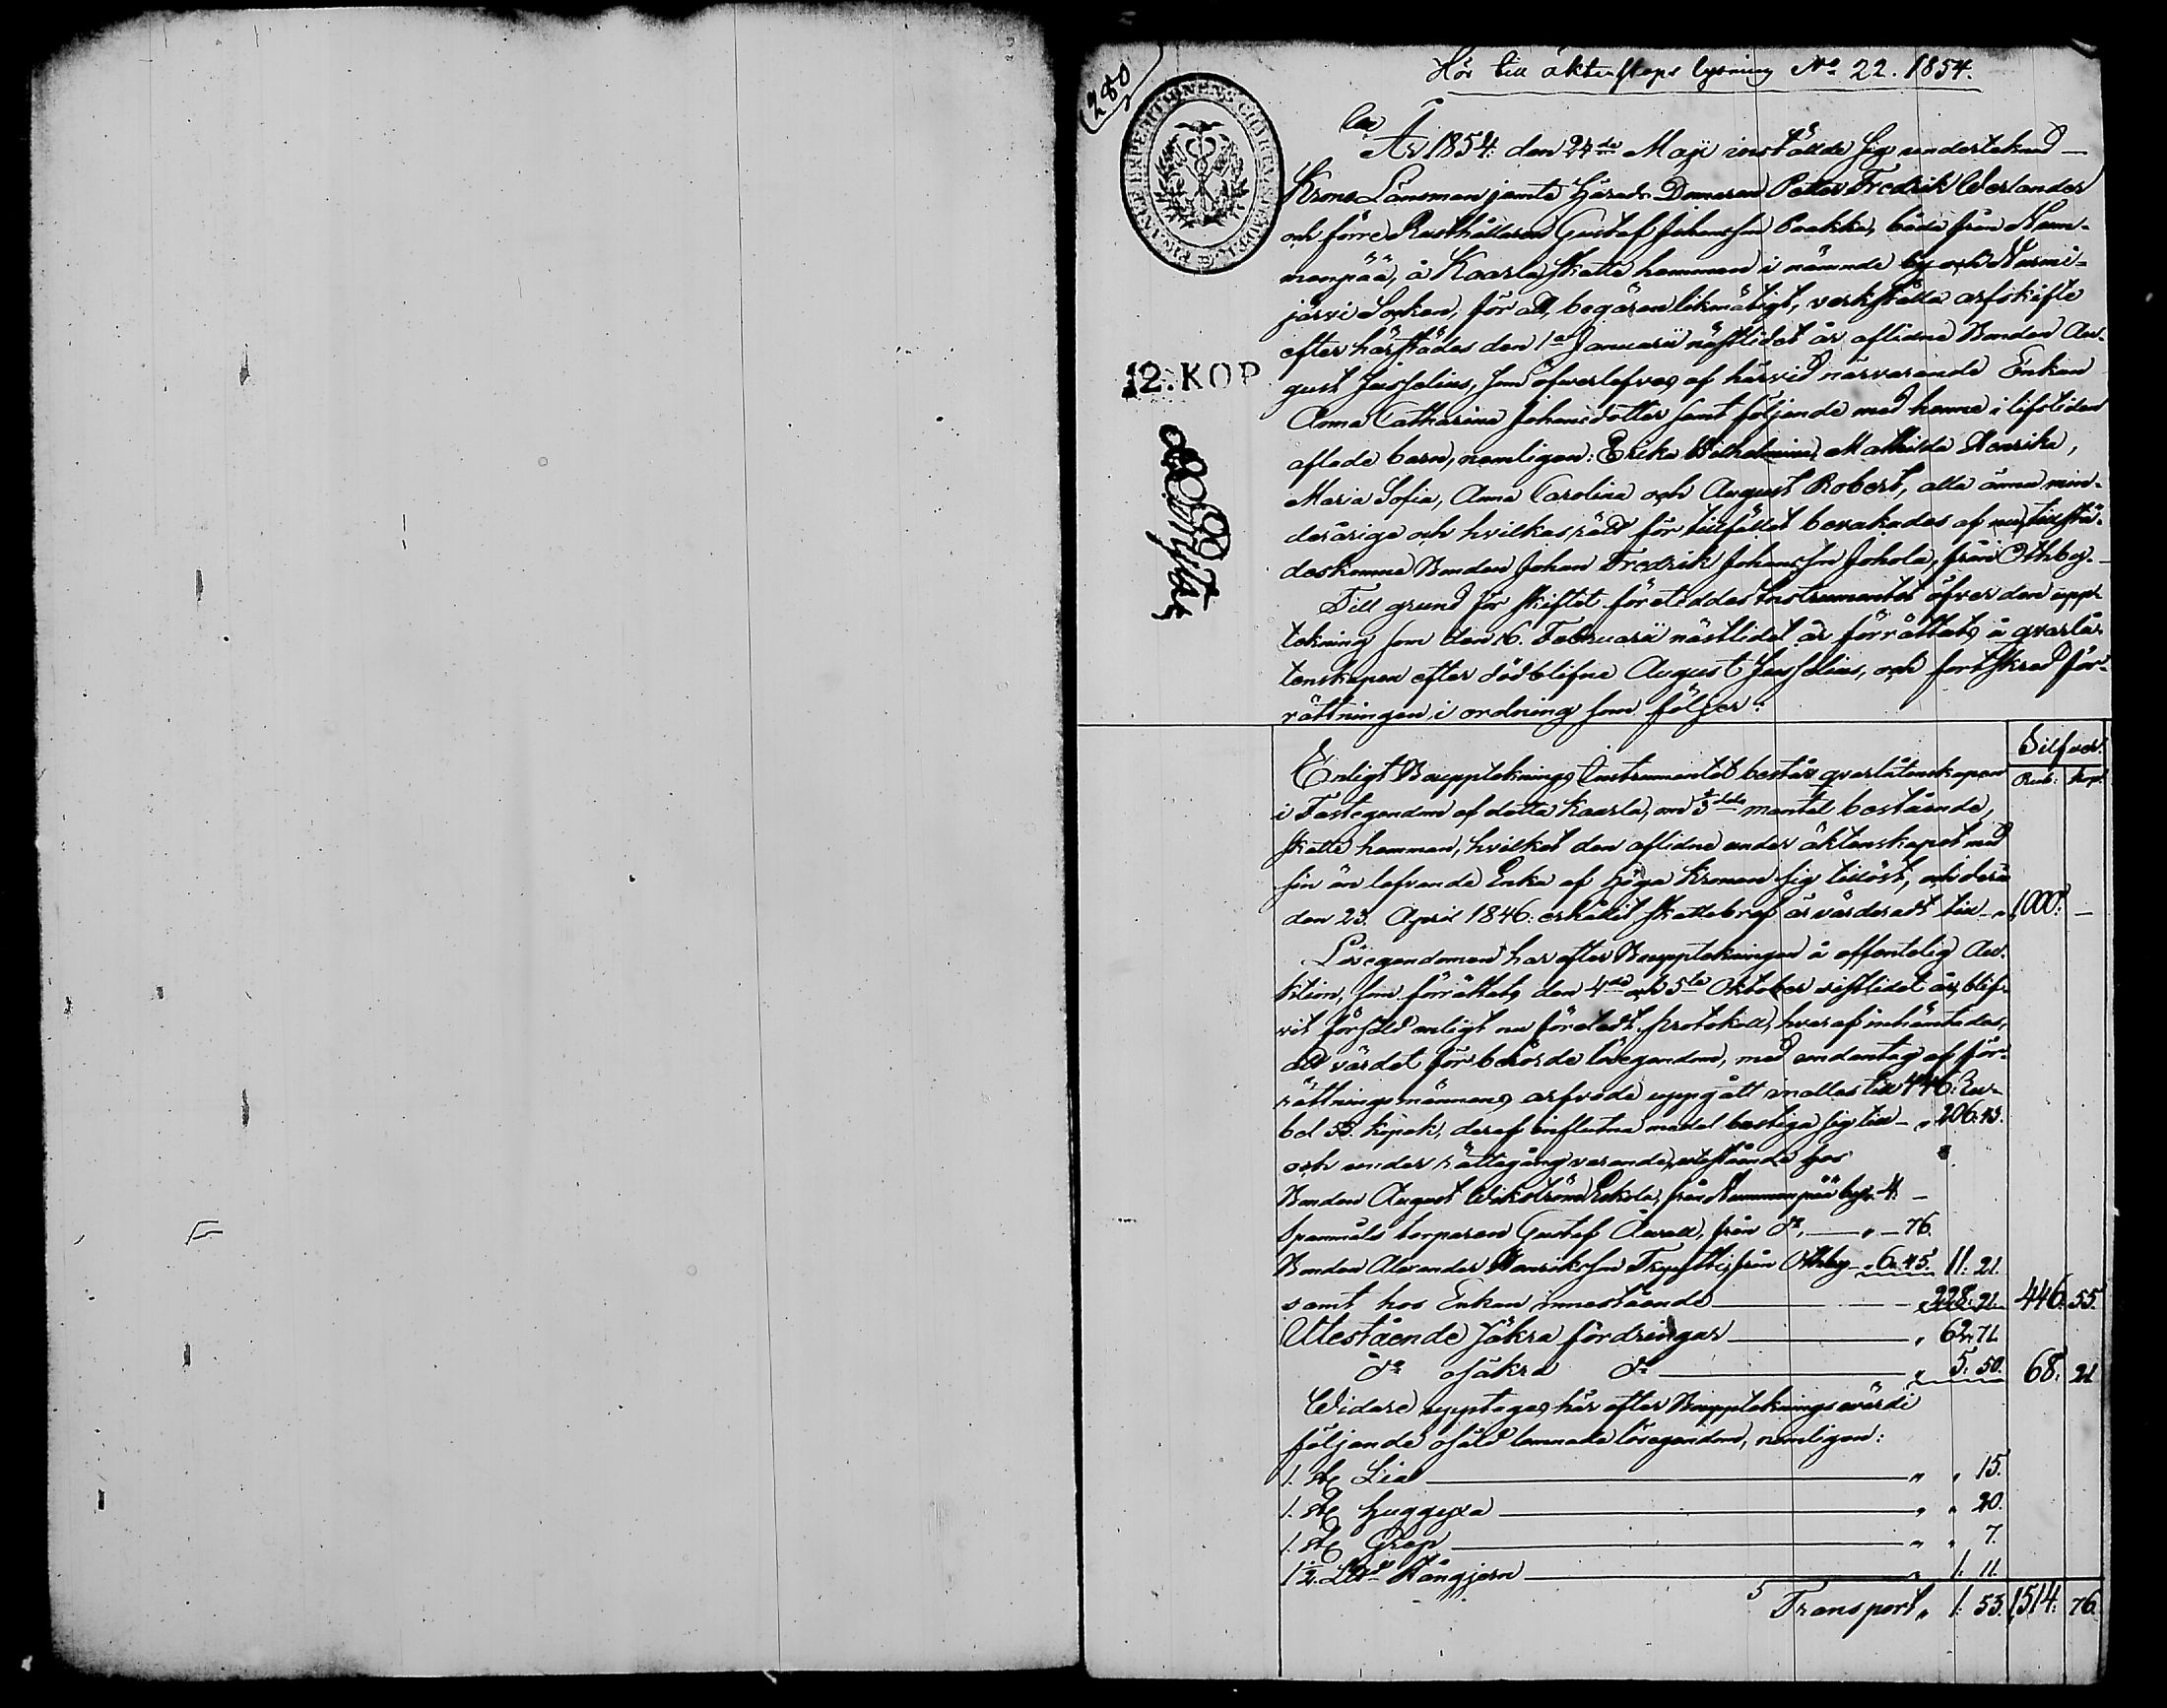 Hör till äktenskaps lysning No 22. 1854.
280
År 1854. den 24de Maji inställde sig undertecknad
Krono Länsman jemte Härads Domaren Petter Fredrik Werlander
och förre Rusthållaren Gustaf Johansson Paakka, båda från Num-
menpää, å Kaarla skatte hemman i nämnde by och Nurmi-
järvi Socken, för att, begäran likmätigt, verkställa arfskifte
efter härstädes den 1a Januarii nästlidet år aflidne Bonden Au-
gust Jusselius, som öfverlefves af härvid närvarande Enkan
Anna Catharina Johansdotter samt följande med henne i lifstiden
aflade barn, nemligen: Erika Wilhelmina, Mathilda Henrika,
Maria Sofia, Anna Carolina och August Robert, alla ännu min-
deråriga och hvilkas rätt för tillfället bevakades af nu tillstä-
deskomne Bonden Johan Fredrik Johansson Johola, från Othby.
Till grund för skiftet företeddes Instrumentet öfver den upp-
tekning som den 16. Februarii nästlidet år förrättats å qvarlå-
tenskapen efter dödblifne August Jusselius, och fortskred för-
rättningen i ordning som följer:
12. KOP
Silfver.
Rub: Kop.
Enligt Bouppteknings Instrumentet består qvarlåtenskapen
i Fastegendom af detta Kaarla, om mantal bestående,
skatte hemman, hvilket den aflidne under äktenskapet med
sin än lefvande Enka af Höga Kronan sig tillöst, och derå
den 23. April 1846. erhållit skattebref är värderadt till 1000: —
Lösegendomen har efter Bouppteckningen å offentelig Au-
ktion, som förrättats den 4de och 5te Oktober sistlidet år, blif-
vit försåld enligt nu företedt protokoll, hvaraf inhämtades,
att värdet för berörde lösegendom, med undantag af för-
rättningsmännens arfvode uppgått inalles till 446: Ru-
bel 55. kopek, deraf influtna medel bestiga sig till — „ 206: 43.
och under rättegång varande, utestående hos
Bonden August Wikström Eskola, från Nummenpää by „ 4. —
Spanmåls torparen Gustaf Axell, från do, — „ — 76.
Bonden Alexander Henriksson från Othby „ 6. 45. 11. 21.
samt hos Enkan innestående — 228: 91. 446. 55.
Utestående säkra fordringar — „ 62. 71
do osäkra do — „ 5. 50. 68. 21
Widare upptages här efter Bouppteknings värde
följande osåld lemnade lösegendom, nemligen:
1. st. Lia — „ „ 15.
1. st. Huggyxa — „ „ 20.
1. st. Grep — „ „ 7.
1½. Stångjern — „ 1. 11.
Transport „ 1: 53. 1514: 76.